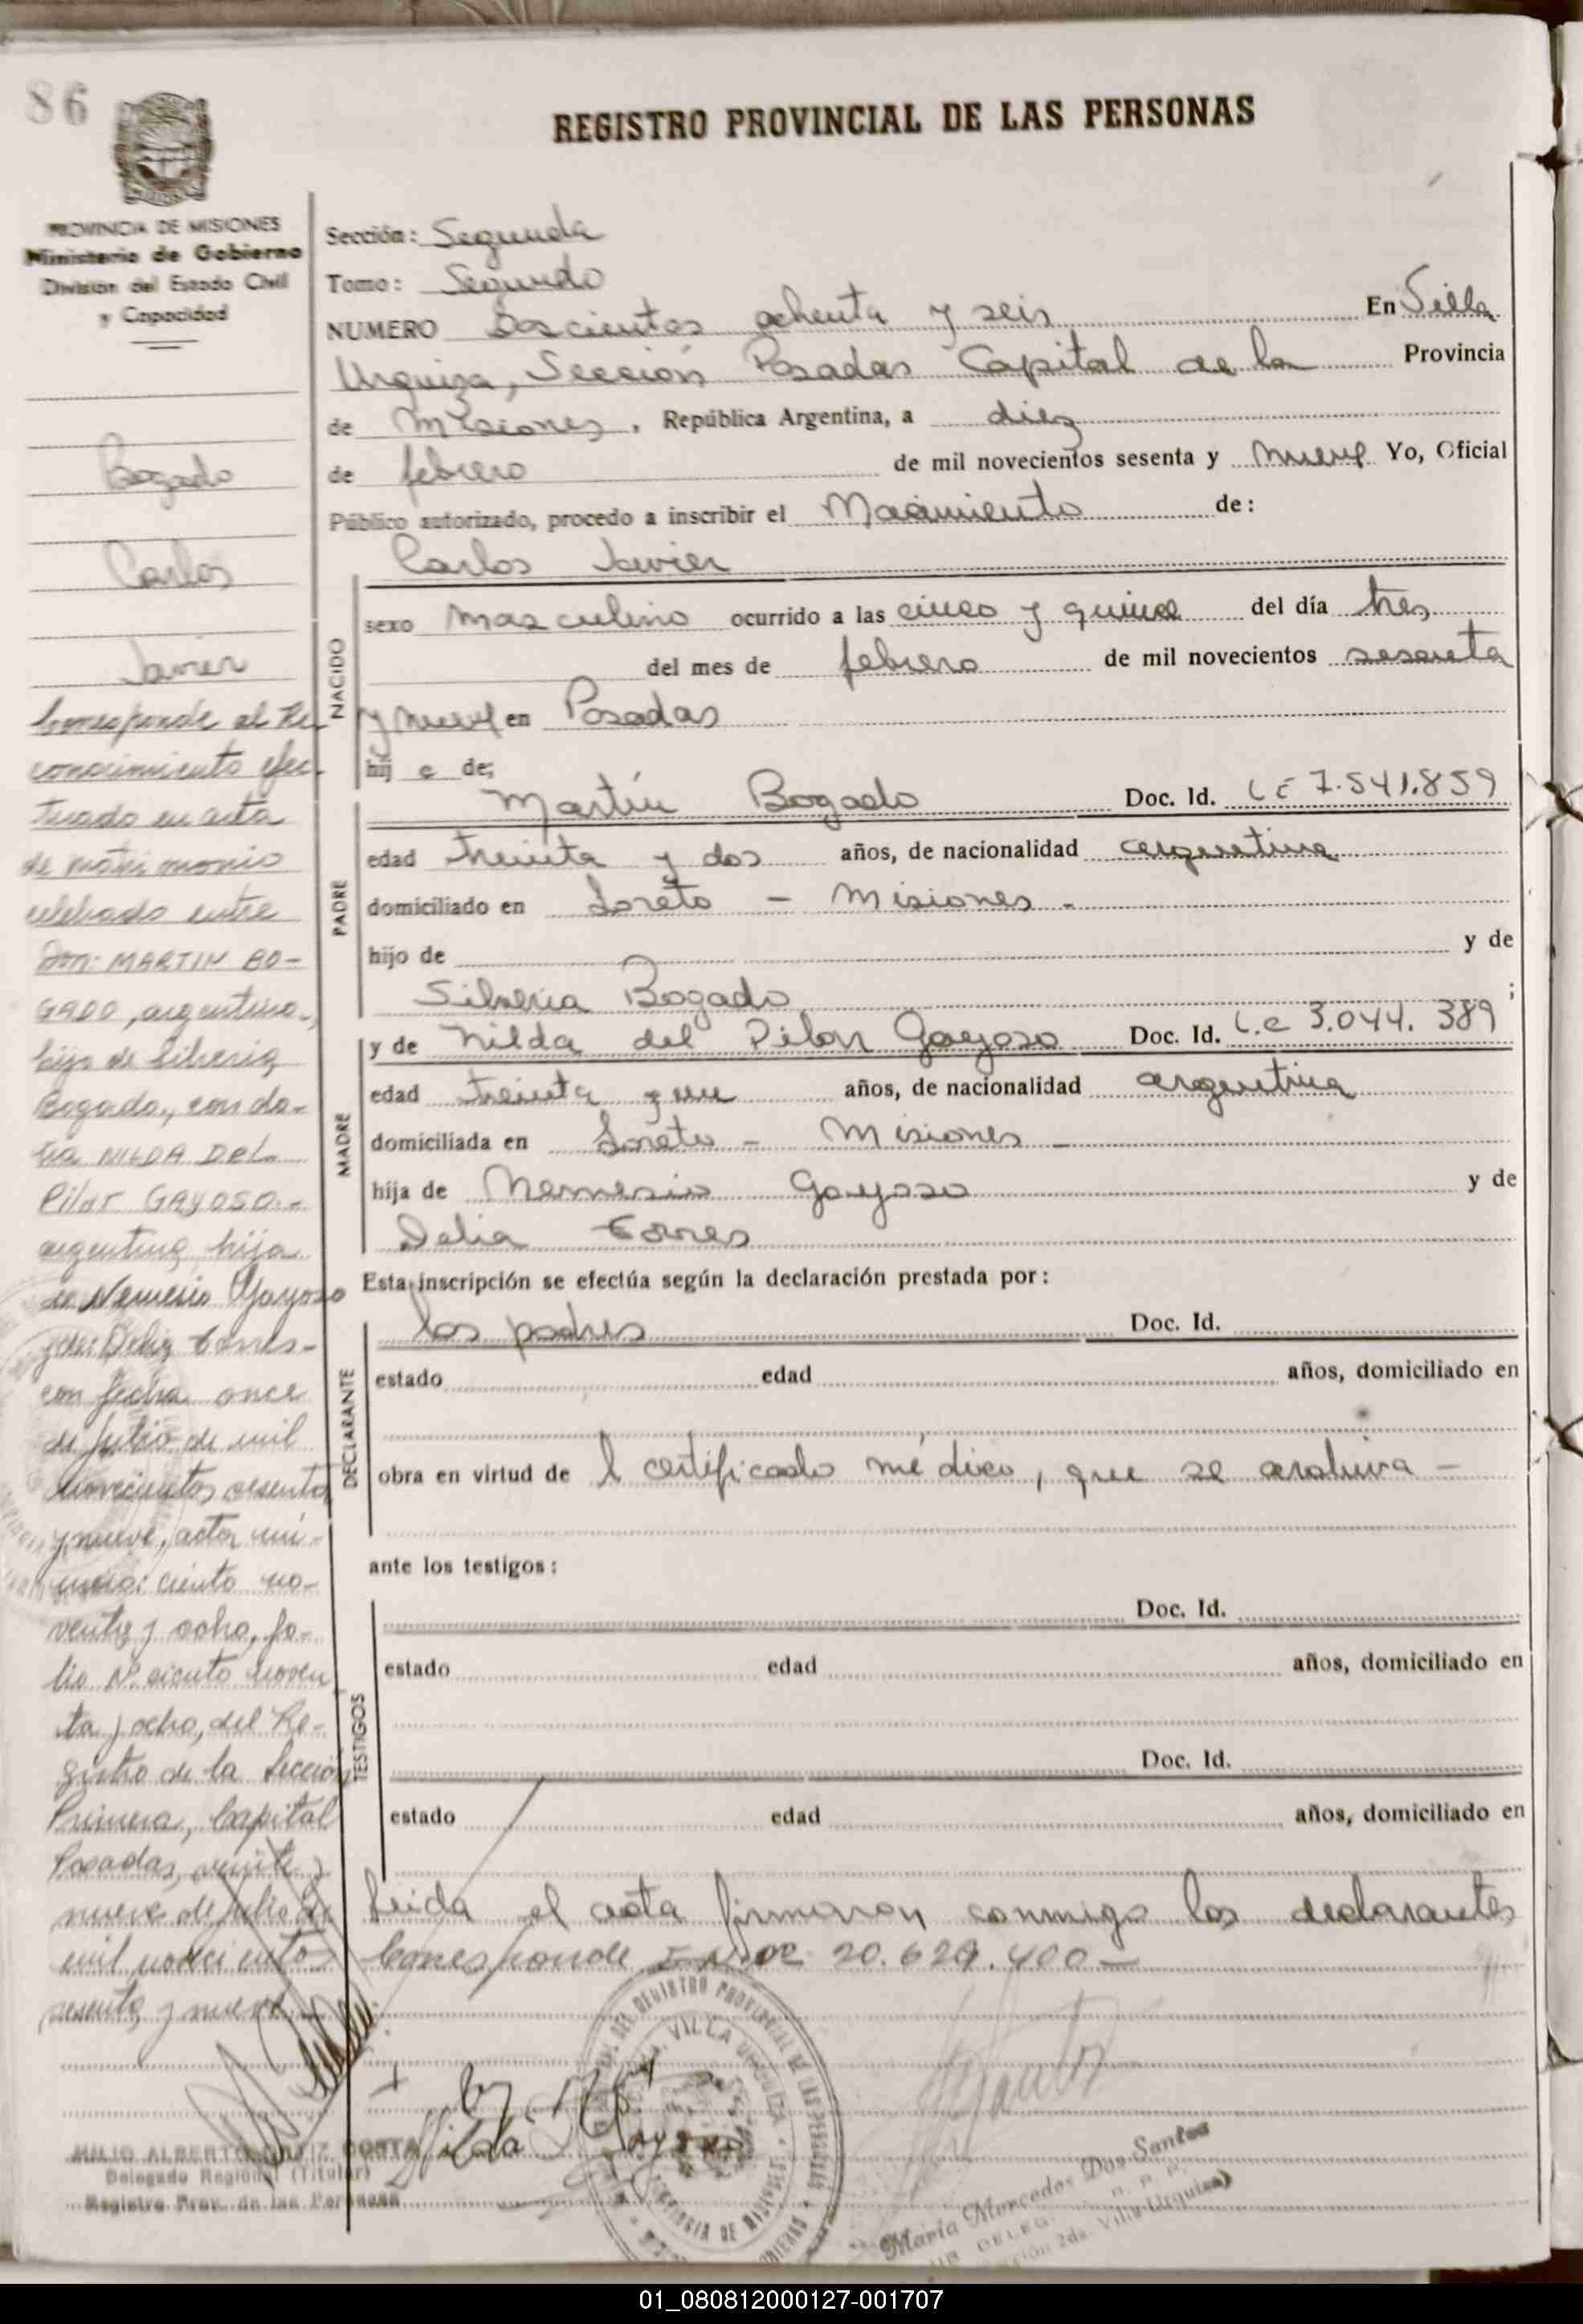 86
REGISTRO PROVINCIAL DE LAS PERSONAS
PROVINCIA DE MISIONES
Ministerio de Gobierno
División del Estado Civil
y Capacidad
Bogado
Carlos
Javier
Corresponde al Re-
conocimiento efec-
tuado en acta
de matrimonio
celebrado entre
Don: MARTIN BO-
GADO, argentino,
hijo de Silveria
Bogado, con do-
ña NILDA DEL
Pilar GAYOSO.-
argentina, hija
de Nemesio Gayoso
y de: Delia Torres-
con fecha once
de Julio de mil
novecientos sesenta
y nueve, acta nú-
mero: ciento no-
venta y ocho, fo-
lio Nº ciento noven
ta y ocho, del Re-
gistro de la Sección
Primera, Capital
Posadas, veinte y
nueve de julio de
mil novecientos
sesenta y nueve.-
JULIO ALBERTO ORTIZ COSTA
Delegado Regional (Titular)
Registro Prov. de las Personas
Sección: Segunda
Tomo: Segundo
NUMERO Doscientos ochenta y seis En Villa
Urquiza, Sección Posadas Capital de la Provincia
de Misiones, República Argentina, a diez
de febrero de mil novecientos sesenta y nueve Yo, Oficial
Público autorizado, procedo a inscribir el Nacimiento de:
Carlos Javier
NACIDO
sexo masculino ocurrido a las cinco y quince del día tres
del mes de febrero de mil novecientos sesenta
y nueve en Posadas
hij o de;
PADRE
Martín Bogado Doc. Id. LE 7.541.859
edad treinta y dos años, de nacionalidad argentina
domiciliado en Loreto - Misiones -
hijo de y de
Silveria Bogado ;
MADRE
y de Nilda del Pilar Gayoso Doc. Id. L.C 3.044.389
edad treinta y un años, de nacionalidad argentina
domiciliada en Loreto - Misiones -
hija de Nemesio Gayoso y de
Delia Torres
Esta inscripción se efectúa según la declaración prestada por:
DECLARANTE
los padres Doc. Id.
estado edad años, domiciliado en
obra en virtud de l certificado médico, que se archiva -
ante los testigos:
TESTIGOS
Doc. Id.
estado edad años, domiciliado en
Doc. Id.
estado edad años, domiciliado en
Leida el acta firmaron conmigo los declarantes
Corresponde 20.629.400-
Nilda Gayoso
DEL REGISTRO PROVINCIAL DE LAS PERSONAS
VILLA URQUIZA
PROVINCIA DE MISIONES
María Mercedes Dos Santos
DELEG. R. P. P.
Sección 2da. Villa Urquiza)
01_080812000127-001707